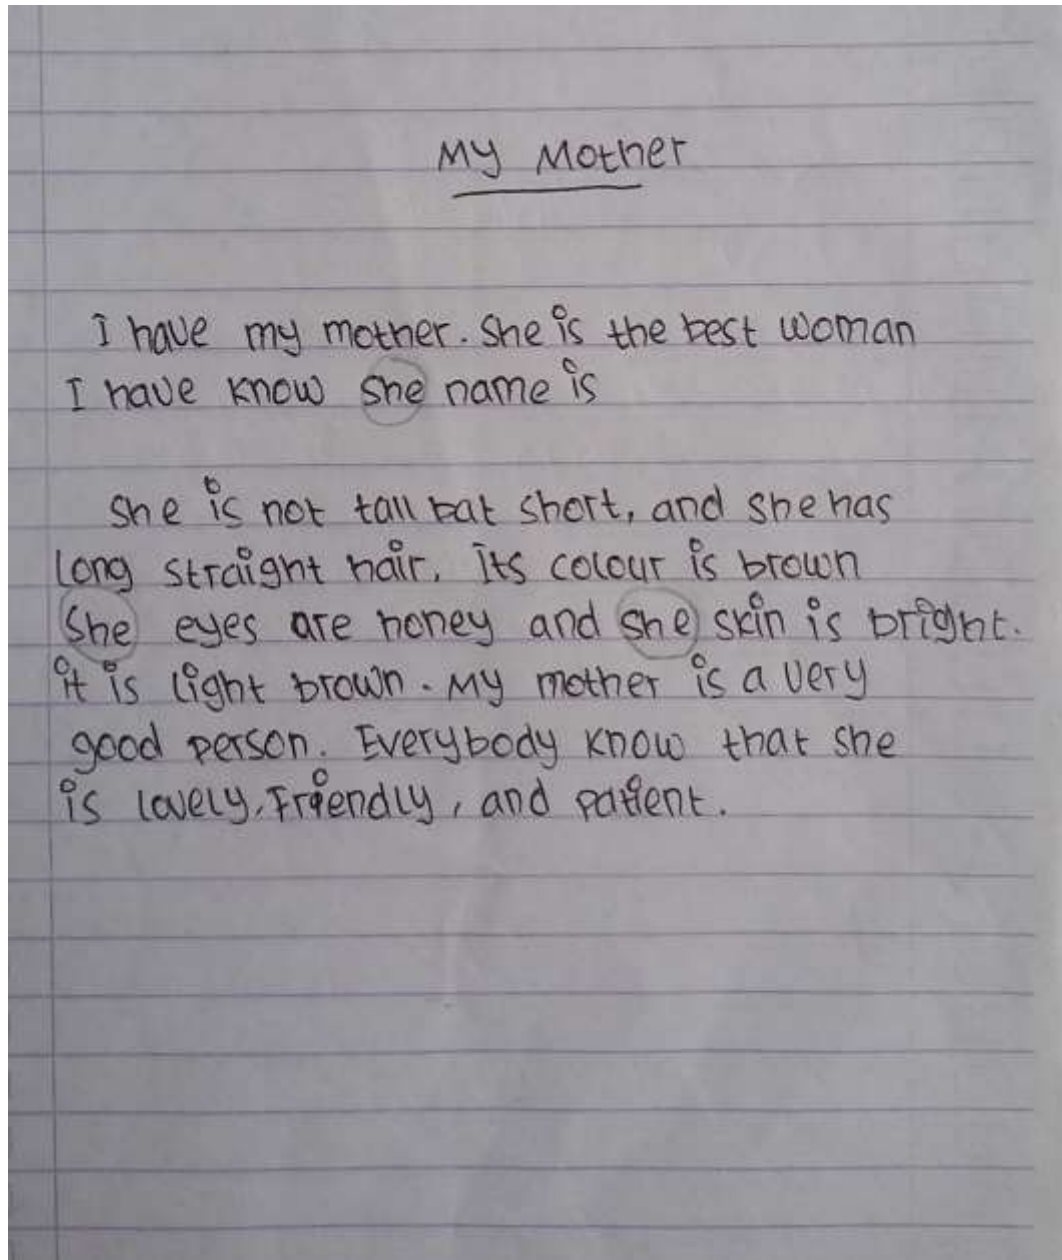 My Mother
I have my mother. She is the best woman
I have know she name is
She is not tall bat short, and she has
long straight hair. Its colour is brown
She eyes are honey and she skin is bright.
it is light brown. My mother is a very
good person. Everybody know that she
is lovely, Friendly, and patient.